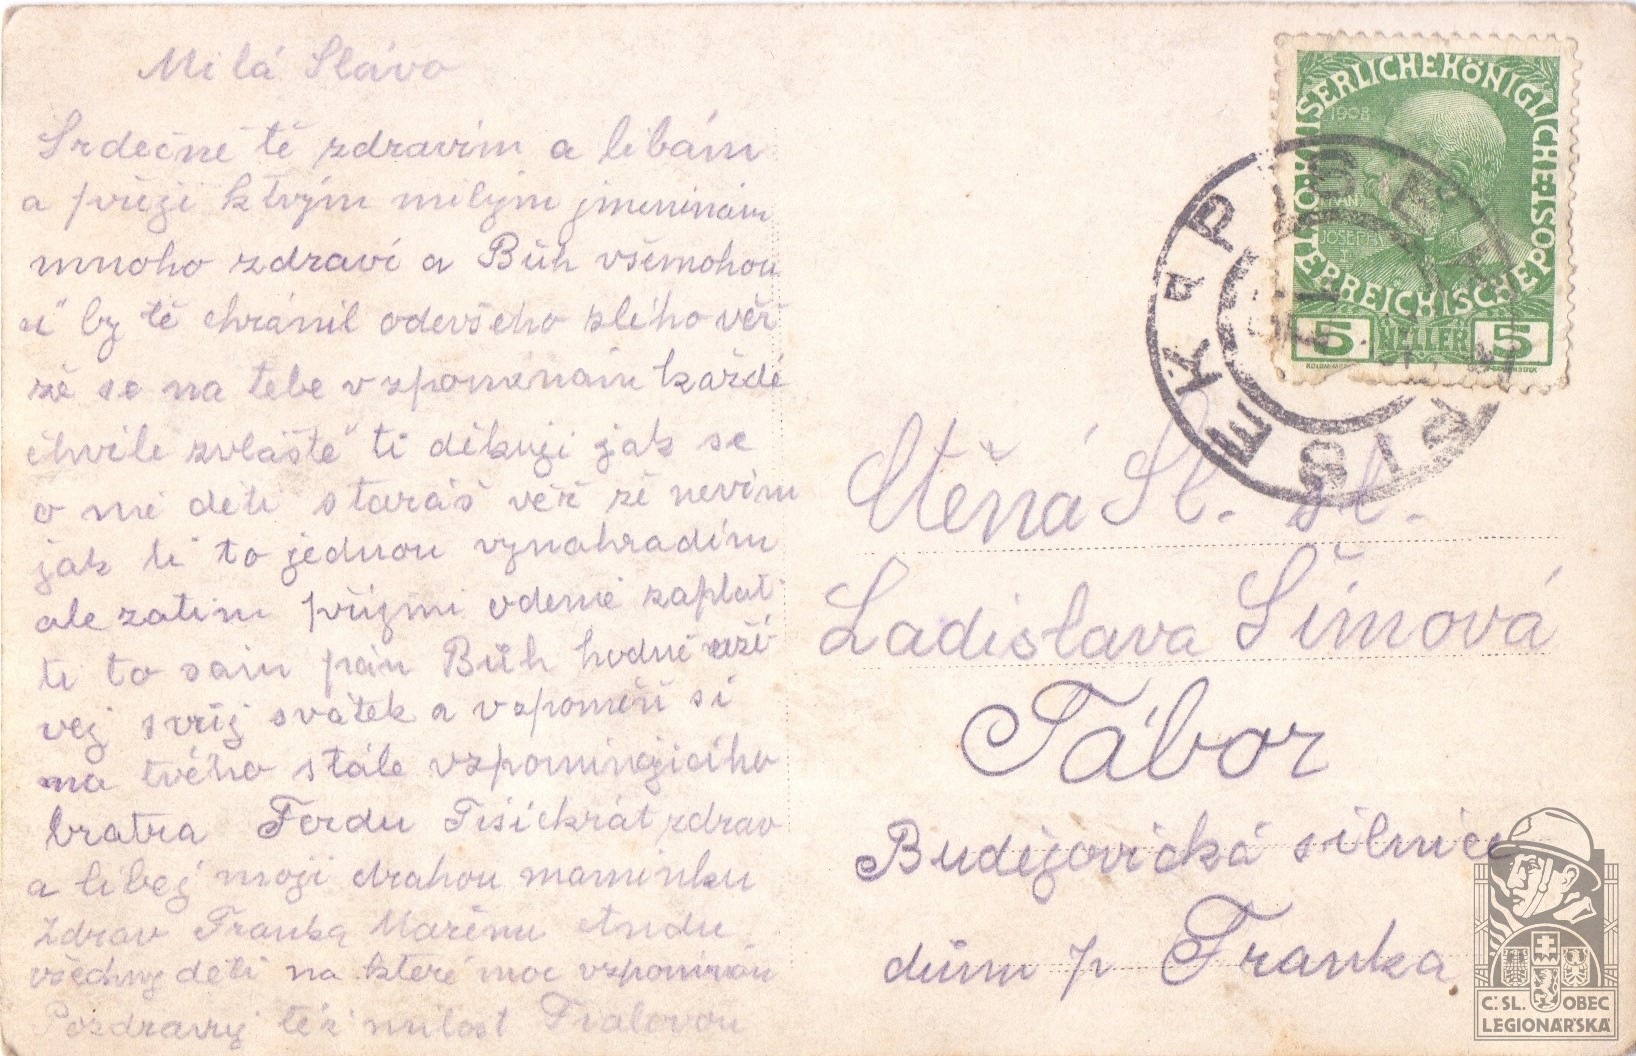 Milá Slávo
Srdečně tě zdravím a líbám
a přeji k tvým milým jmeninám
mnoho zdraví a Bůh všemohou
cí by tě chránil odevšeho zlého věř
zě se na tebe vzpomenám každé
chvíle zvláště ti děkuji jak se
o mé děti staráš věř zě nevím
jak ti to jednou vynahradím
ale zatím přijmi odemě zaplať
ti to sám pán Bůh hodně uží
vej svůj svátek a vzpomeň si
na tvého stále vzpomínajícího
bratra Ferdu Tisíckrát zdrav
a líbej moji drahou maminku
Zdrav Franka Mařenu Andu
všechny děti na které moc vzpomínám
Pozdravuj též milost Fialovou
KAISERLICHEKÖNIGLICHE
ÖSTERREICHISCHEPOST
1908
FRANZ
JOSEPH I
5 HELLER 5
PÍSEK
PISEK
Ctěná Sl. sl.
Ladislava Šímová
Tábor
Budějovická silnice
dům p Franka
Č. SL. OBEC
LEGIONÁŘSKÁ